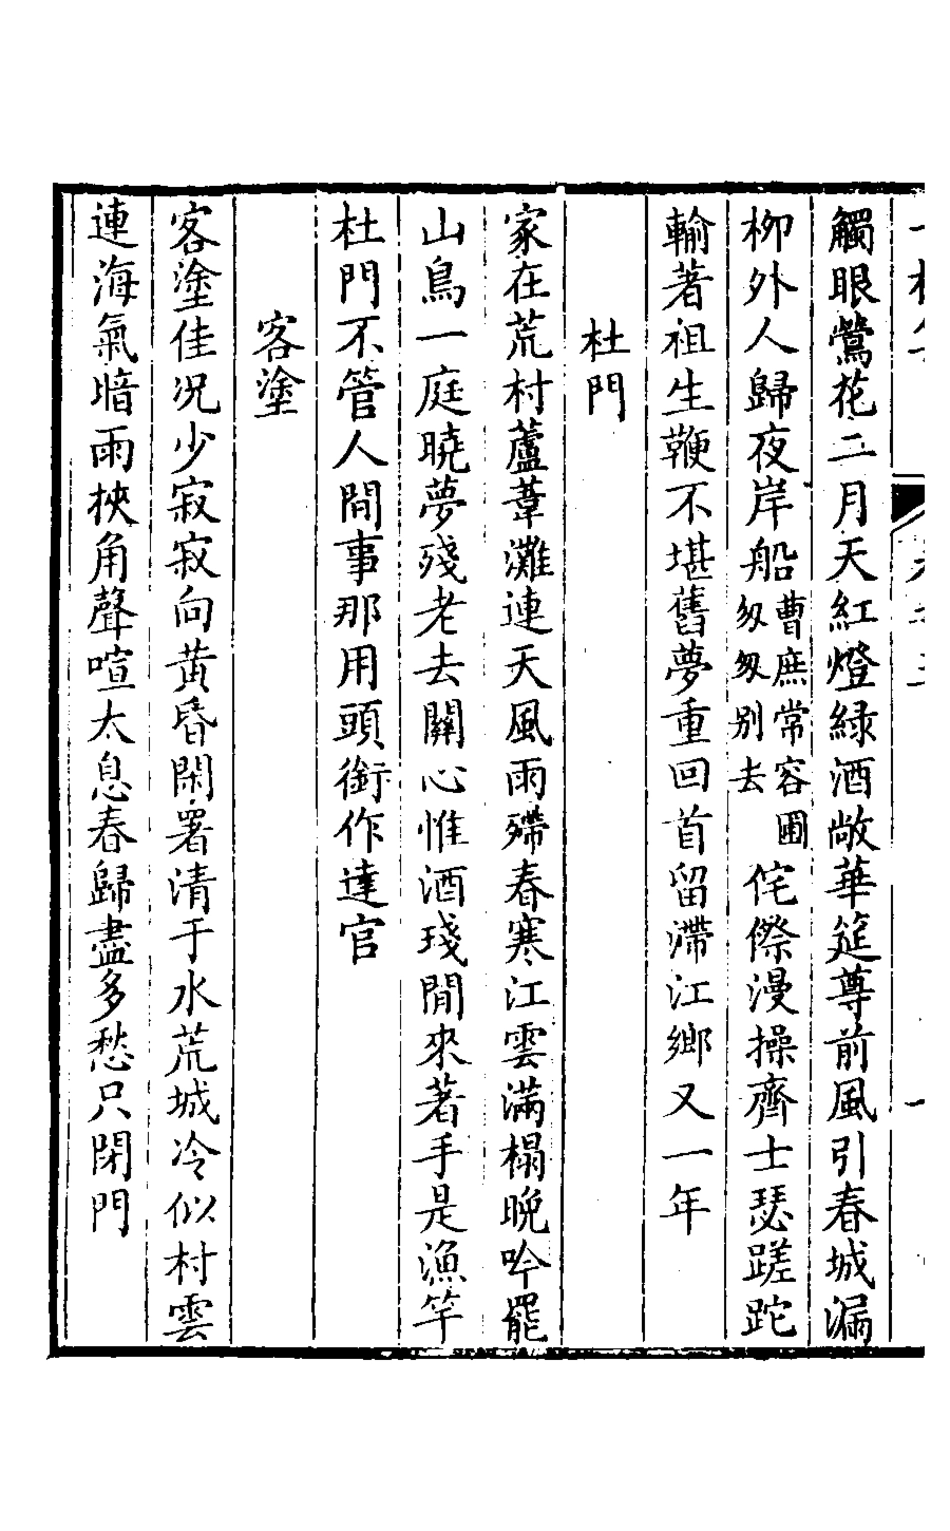 觸眼鶯花二月天紅燈緑酒敞華筵尊前風引春城漏
柳外人歸夜岸船曹庶常容圃匆匆别去侘傺漫操齊士瑟蹉跎
輸著祖生鞭不堪舊夢重回首留滯江鄉又一年
杜門
家在荒村蘆葦灘連天風雨殢春寒江雲滿榻晚吟罷
山鳥一庭曉夢殘老去關心惟酒琖閒來著手是漁竿
杜門不管人間事那用頭銜作達官
客塗
客塗佳况少寂寂向黄昏閑署清于水荒城冷似村雲
連海氣暗雨挾角聲喧太息春歸盡多愁只閉門